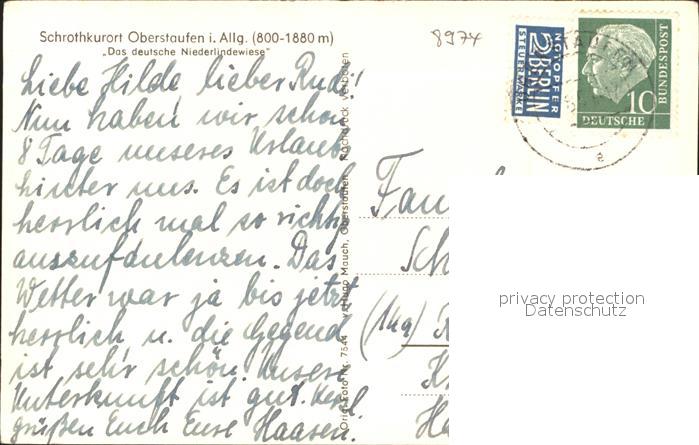 Schrothkurort Oberstaufen i. Allg. (800-1880 m)
„Das deutsche Niederlindewiese"
8974
NOTOPFER
2 BERLIN
STEUERMARKE
10
DEUTSCHE
BUNDESPOST
Liebe Hilde lieber Rudi!
Nun haben wir schon
8 Tage unseres Urlaubs
hinter uns. Es ist doch
herrlich mal so richtig
auszufaulenzen. Das
Wetter war ja bis jetzt
herrlich u. die Gegend
ist sehr schön. Unsere
Unterkunft ist gut. Herzl.
grüßen Euch Eure Haasen.
Orig.-Foto Nr. 7544 Hugo Mauch, Oberstaufen Nachdruck verboten
Fam
Sch
privacy protection
Datenschutz